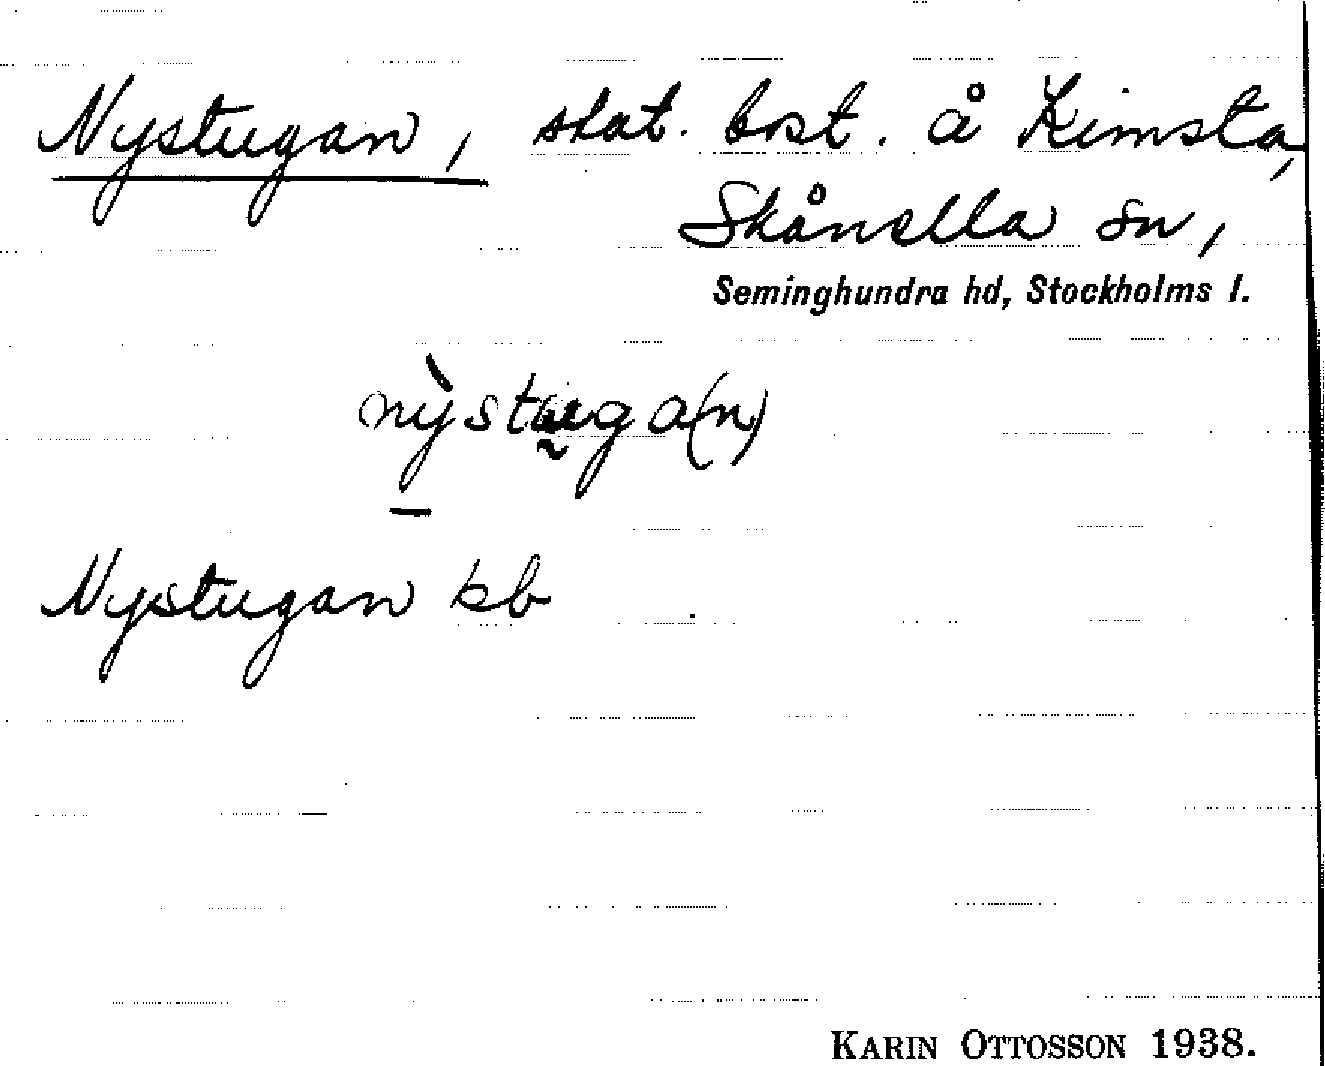 Nystugan, stat. bost. å Kimsta,
Skånella sn,
Seminghundra hd, Stockholms l.
nỳstuga(n)
Nystugan kb
KARIN OTTOSSON 1938.